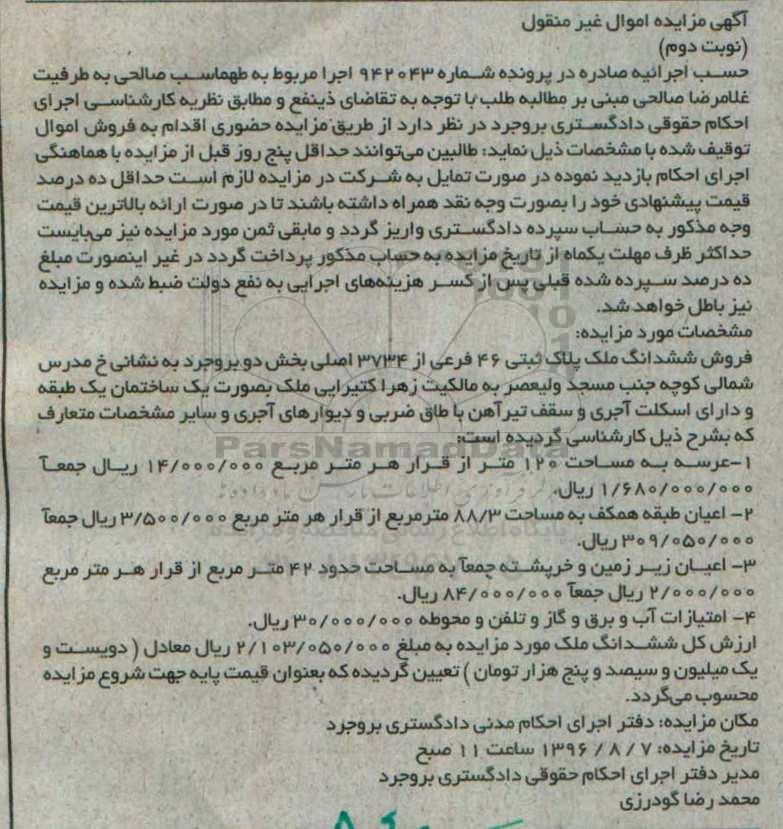 آگهی مزایده اموال غیر منقول
(نوبت دوم)
حسب اجرائیه صادره در پرونده شماره ۹۴۲۰۴۳ اجرا مربوط به طهماسب صالحی به طرفیت
غلامرضا صالحی مبنی بر مطالبه طلب با توجه به تقاضای ذینفع و مطابق نظریه کارشناسی اجرای
احکام حقوقی دادگستری بروجرد در نظر دارد از طریق مزایده حضوری اقدام به فروش اموال
توقیف شده با مشخصات ذیل نماید: طالبین می‌توانند حداقل پنج روز قبل از مزایده با هماهنگی
اجرای احکام بازدید نموده در صورت تمایل به شرکت در مزایده لازم است حداقل ده درصد
قیمت پیشنهادی خود را بصورت وجه نقد همراه داشته باشند تا در صورت ارائه بالاترین قیمت
وجه مذکور به حساب سپرده دادگستری واریز گردد و مابقی ثمن مورد مزایده نیز می‌بایست
حداکثر ظرف مهلت یکماه از تاریخ مزایده به حساب مذکور پرداخت گردد در غیر اینصورت مبلغ
ده درصد سپرده شده قبلی پس از کسر هزینه‌های اجرایی به نفع دولت ضبط شده و مزایده
نیز باطل خواهد شد.
مشخصات مورد مزایده:
فروش ششدانگ ملک پلاک ثبتی ۴۶ فرعی از ۳۷۳۴ اصلی بخش دو بروجرد به نشانی خ مدرس
شمالی کوچه جنب مسجد ولیعصر به مالکیت زهرا کتیرایی ملک بصورت یک ساختمان یک طبقه
و دارای اسکلت آجری و سقف تیرآهن با طاق ضربی و دیوارهای آجری و سایر مشخصات متعارف
که بشرح ذیل کارشناسی گردیده است:
ParsNamadData
۱-عرسه به مساحت ۱۲۰ متر از قرار هر متر مربع ۱۴/۰۰۰/۰۰۰ ریال جمعآ
۱/۶۸۰/۰۰۰/۰۰۰ ریال.
۲- اعیان طبقه همکف به مساحت ۸۸/۳ مترمربع از قرار هر متر مربع ۳/۵۰۰/۰۰۰ ریال جمعآ
۳۰۹/۰۵۰/۰۰۰ ریال.
۳- اعیان زیر زمین و خرپشته جمعآ به مساحت حدود ۴۲ متر مربع از قرار هر متر مربع
۲/۰۰۰/۰۰۰ ریال جمعآ ۸۴/۰۰۰/۰۰۰ ریال.
۴- امتیازات آب و برق و گاز و تلفن و محوطه ۳۰/۰۰۰/۰۰۰ ریال.
ارزش کل ششدانگ ملک مورد مزایده به مبلغ ۲/۱۰۳/۰۵۰/۰۰۰ ریال معادل ( دویست و
یک میلیون و سیصد و پنج هزار تومان ) تعیین گردیده که بعنوان قیمت پایه جهت شروع مزایده
محسوب می‌گردد.
مکان مزایده: دفتر اجرای احکام مدنی دادگستری بروجرد
تاریخ مزایده: ۷ / ۸ / ۱۳۹۶ ساعت ۱۱ صبح
مدیر دفتر اجرای احکام حقوقی دادگستری بروجرد
محمد رضا گودرزی